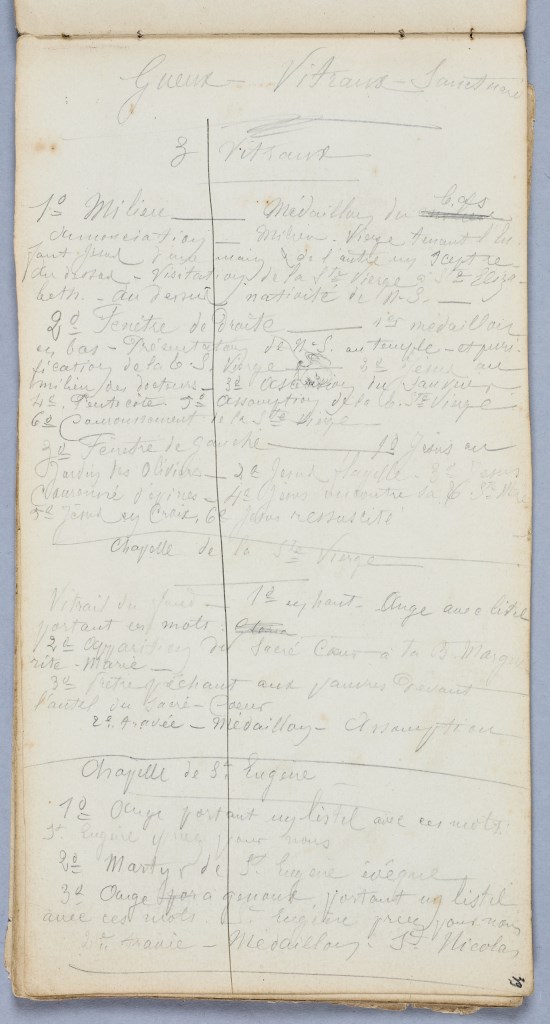 Gueux - Vitraux - Sanctuaire
3 Vitraux
1º Milieu Médaillon du bas
Annonciation - Milieu - Vierge tenant l'En
fant Jésus d'une main, de l'autre un sceptre
Au dessus - Visitation de la Ste Vierge à Ste Eliza
beth. - Au dessus, nativité de N-S. -
2º Fenêtre de Droite 1er médaillon
en bas - Présentation de N.-S. au temple - et puri
fication de la T. S. Vierge 2e Jésus au
milieu des docteurs - 3e Ascension du Sauveur
4e Pentecôte - 5e Assomption de la T. Ste Vierge
6e Couronnement de la Ste Vierge -
3º Fenêtre de gauche - 1º Jésus au
Jardin des Oliviers - 2e Jésus flagellé - 3e Jésus
Couronné d'épines - 4e Jésus rencontre sa T. Ste Mère
5e Jésus en Croix, 6e Jésus ressuscité
Chapelle de la Ste Vierge
Vitrail du fond - 1º en haut - Ange avec listel
portant ces mots.
2e Apparition du Sacré Cœur à la B. Margue
rite-Marie -
3e Prêtre prêchant aux pauvres devant
l'autel du Sacré-Cœur
2e Travée - Médaillon - Assomption
Chapelle de St Eugène
1º Ange portant un listel avec ces mots:
St Eugène priez pour nous
2º Martyr de St Eugène évêque
3º Ange à genoux, portant un listel
avec ces mots. St Eugène priez pour nous
2e travée - Médaillon. St Nicolas
39